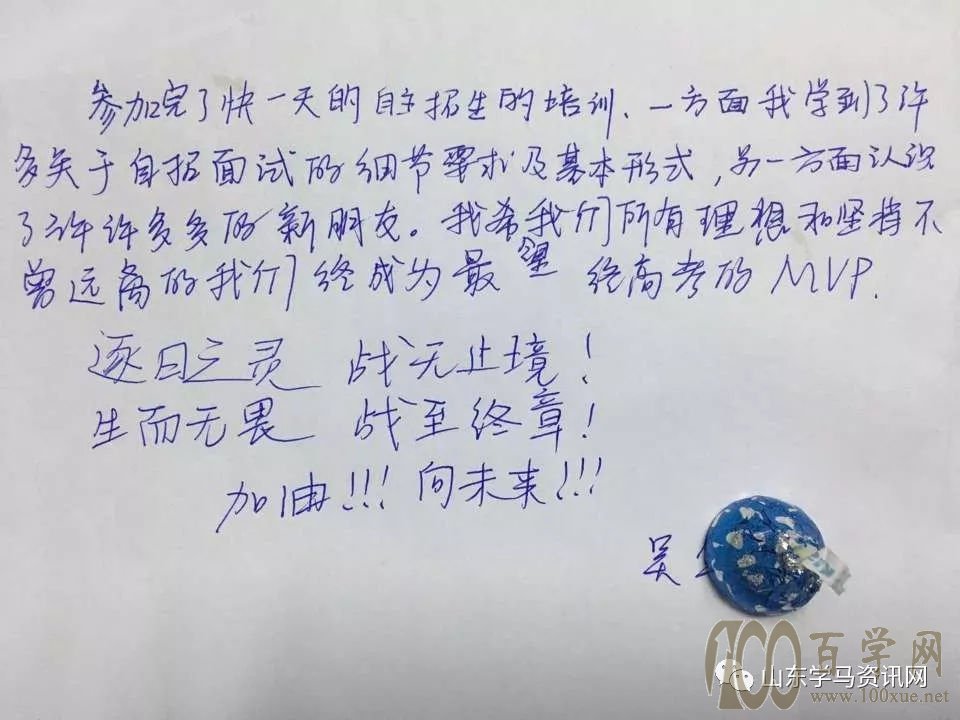 参加完了快一天的自主招生的培训、一方面我学到了许
多关于自招面试的细节要求及基本形式，另一方面认识
了许许多多的新朋友。我希我们所有理想和坚持不
曾远离的我们终成为最望终高考的MVP.
逐日之灵 战无止境！
生而无畏 战至终章！
加油!!! 向未来!!!
吴
100百学网
山东学马资讯网
www.100xue.net